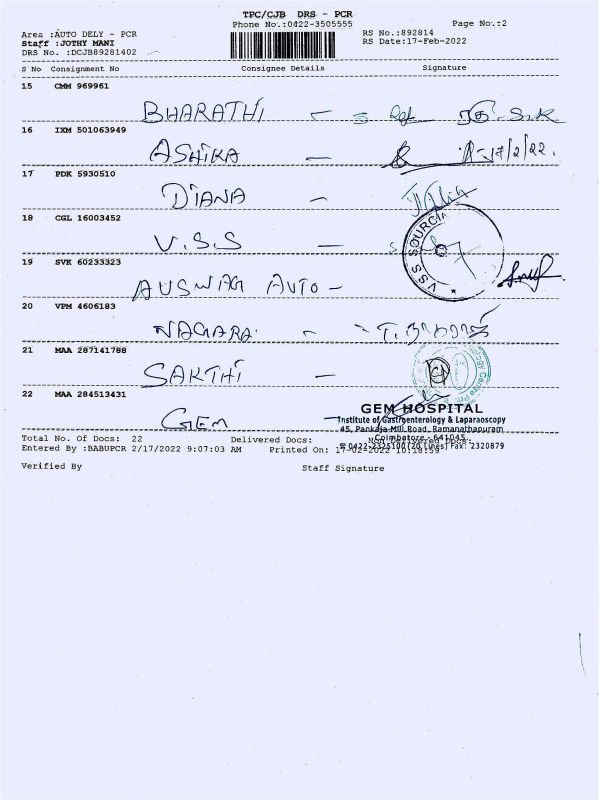 TPC/CJB DRS - PCR
Phone No.:0422-3505555
Page No.:2
Area :AUTO DELY - PCR
RS No.:892814
Staff :JOTHY MANI
RS Date:17-Feb-2022
DRS No. :DCJB89281402
S No Consignment No Consignee Details Signature
15 CMM 969961
BHARATHI
16 IXM 501063949
ASHIKA — 17/2/22.
17 PDK 5930510
DIANA —
18 CGL 16003452
V.S.S —
VSS SOURCIN
19 SVK 60233323
AUTO -
20 VPM 4606183
NAGARA
21 MAA 287141788
SAKTHI —
22 MAA 284513431
GEM —
GEM HOSPITAL
Institute of Gastroenterology & Laparaoscopy
45, Pankaja Mill Road, Ramanathapuram
Coimbatore - 641045
0422-2325100 (20 Lines) Fax: 2320879
Total No. Of Docs: 22 Delivered Docs: Non Delivered Docs:
Entered By :BABUPCR 2/17/2022 9:07:03 AM Printed On: 17-02-2022 10:18:59
Verified By Staff Signature